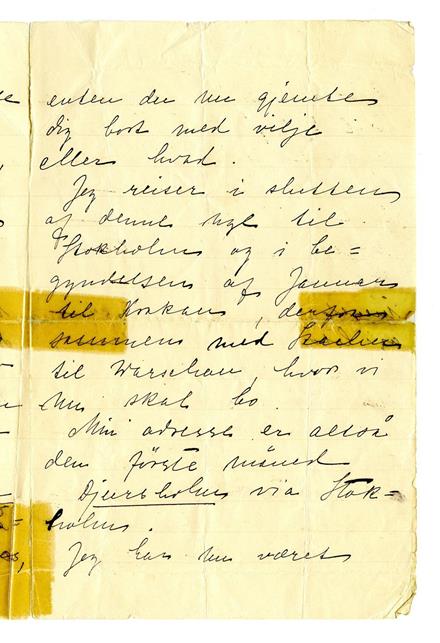 enten du nu gjemte
dig bort med vilje
eller hvad.
Jeg reiser i slutten
af denne uge til
Stokholm og i be=
gyndelsen af Januar
til Krakau, derfra
sammen med Stachu
til Warschau, hvor vi
nu skal bo.
Min adresse er altså
den første måned
Djursholm via Stok=
holm.
Jeg har nu været